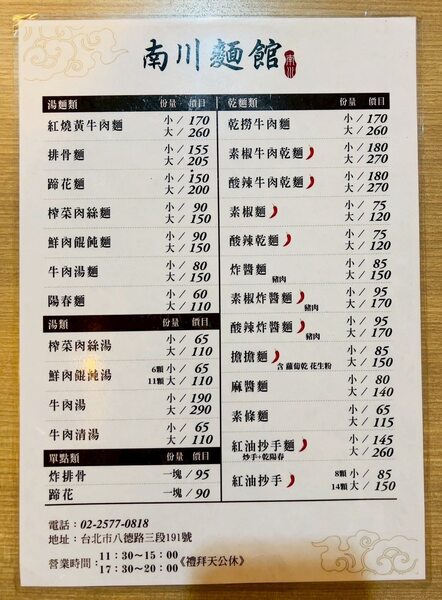 南川麵館
南川
湯麵類 份量 價目
紅燒黃牛肉麵 小 / 170
大 / 260
排骨麵 小 / 155
大 / 205
蹄花麵 小 / 150
大 / 200
榨菜肉絲麵 小 / 90
大 / 150
鮮肉餛飩麵 小 / 90
大 / 150
牛肉湯麵 小 / 80
大 / 150
陽春麵 小 / 60
大 / 110
湯類 份量 價目
榨菜肉絲湯 小 / 65
大 / 110
鮮肉餛飩湯 6顆 小 / 65
11顆 大 / 110
牛肉湯 小 / 190
大 / 290
牛肉清湯 小 / 65
大 / 110
單點類 份量 價目
炸排骨 一塊 / 95
蹄花 一塊 / 90
乾麵類 份量 價目
乾撈牛肉麵 小 / 170
大 / 260
素椒牛肉乾麵 小 / 180
大 / 270
酸辣牛肉乾麵 小 / 180
大 / 270
素椒麵 小 / 75
大 / 120
酸辣乾麵 小 / 75
大 / 120
炸醬麵 小 / 85
豬肉 大 / 150
素椒炸醬麵 小 / 95
豬肉 大 / 170
酸辣炸醬麵 小 / 95
豬肉 大 / 170
擔擔麵 小 / 85
含 蘿蔔乾 花生粉 大 / 150
麻醬麵 小 / 80
大 / 140
素條麵 小 / 65
大 / 115
紅油抄手麵 小 / 145
炒手+乾陽春 大 / 260
紅油抄手 8顆 小 / 85
14顆 大 / 150
電話：02-2577-0818
地址：台北市八德路三段191號
營業時間：11：30～15：00
17：30～20：00《禮拜天公休》